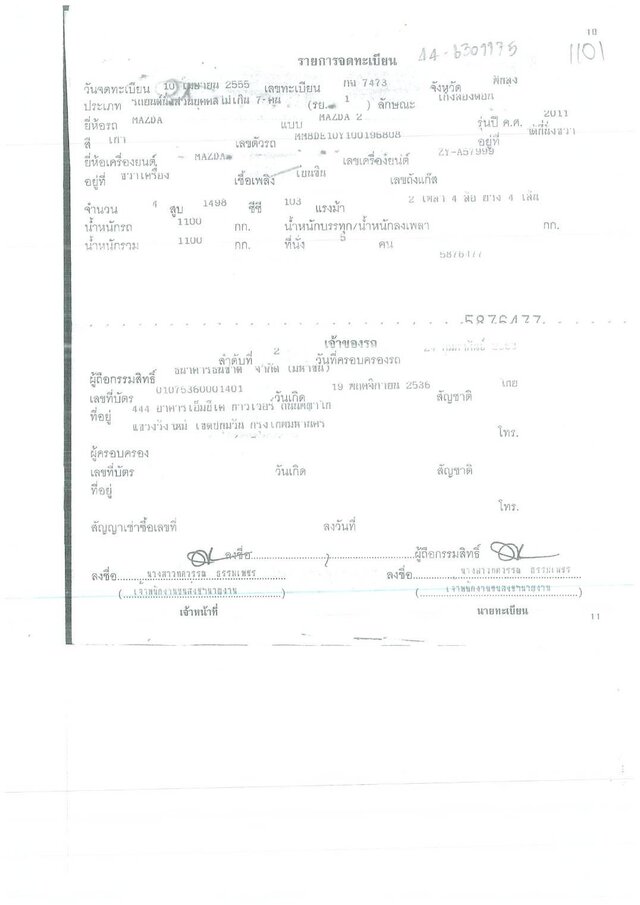 10
รายการจดทะเบียน 44-6309975 1101
วันจดทะเบียน 10 เมษายน 2555 เลขทะเบียน กน 7473 จังหวัด
ประเภท รถยนต์นั่งส่วนบุคคลไม่เกิน 7 คน (รย. 1 ) ลักษณะ เก๋งสองตอน
ยี่ห้อรถ MAZDA แบบ MAZDA 2 รุ่นปี ค.ศ. 2011
สี เทา เลขตัวรถ MM8DE10Y100196808 อยู่ที่
ยี่ห้อเครื่องยนต์ MAZDA เลขเครื่องยนต์ ZY-A57999
อยู่ที่ ขวาเครื่อง เชื้อเพลิง เบนซิน เลขถังแก๊ส
จำนวน 4 สูบ 1498 ซีซี 103 แรงม้า 2 เพลา 4 ล้อ ยาง 4 เส้น
น้ำหนักรถ 1100 กก. น้ำหนักบรรทุก/น้ำหนักลงเพลา กก.
น้ำหนักรวม 1100 กก. ที่นั่ง 5 คน
5876477
5876477
เจ้าของรถ
ลำดับที่ 2 วันที่ครอบครองรถ
ผู้ถือกรรมสิทธิ์ ธนาคารธนชาต จำกัด (มหาชน)
เลขที่บัตร 01075360001401 วันเกิด 19 พฤศจิกายน 2536 สัญชาติ ไทย
ที่อยู่ 444 อาคารเอ็มบีเค ทาวเวอร์ ถนนพญาไท
แขวงวังใหม่ เขตปทุมวัน กรุงเทพมหานคร
โทร.
ผู้ครอบครอง
เลขที่บัตร วันเกิด สัญชาติ
ที่อยู่
โทร.
สัญญาเช่าซื้อเลขที่ ลงวันที่
ลงชื่อ ผู้ถือกรรมสิทธิ์
ลงชื่อ ลงชื่อ
(เจ้าพนักงานขนส่งชำนาญงาน) (เจ้าพนักงานขนส่งชำนาญงาน)
เจ้าหน้าที่ นายทะเบียน
11